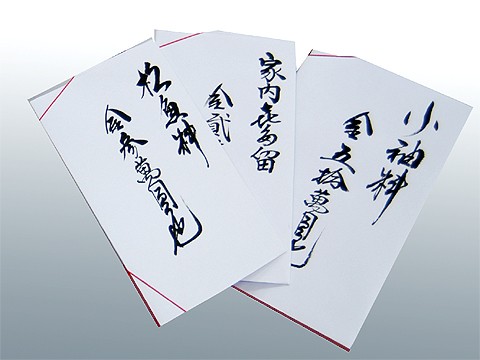 小袖料
金五拾萬圓也
家内喜多留
金貮
松魚料
金参萬圓也